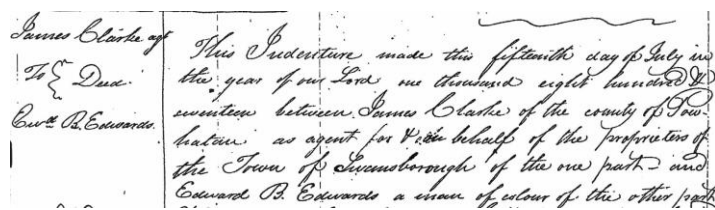 James Clarke agt
To } Deed
Edwd. B. Edwards.
This Indenture made this fifteenth day of July in
the year of our Lord one thousand eight hundred &
seventeen between James Clarke of the county of Pow-
hatan as agent for & on behalf of the proprietors of
the Town of Swansborough of the one part and
Edward B. Edwards a man of colour of the other part